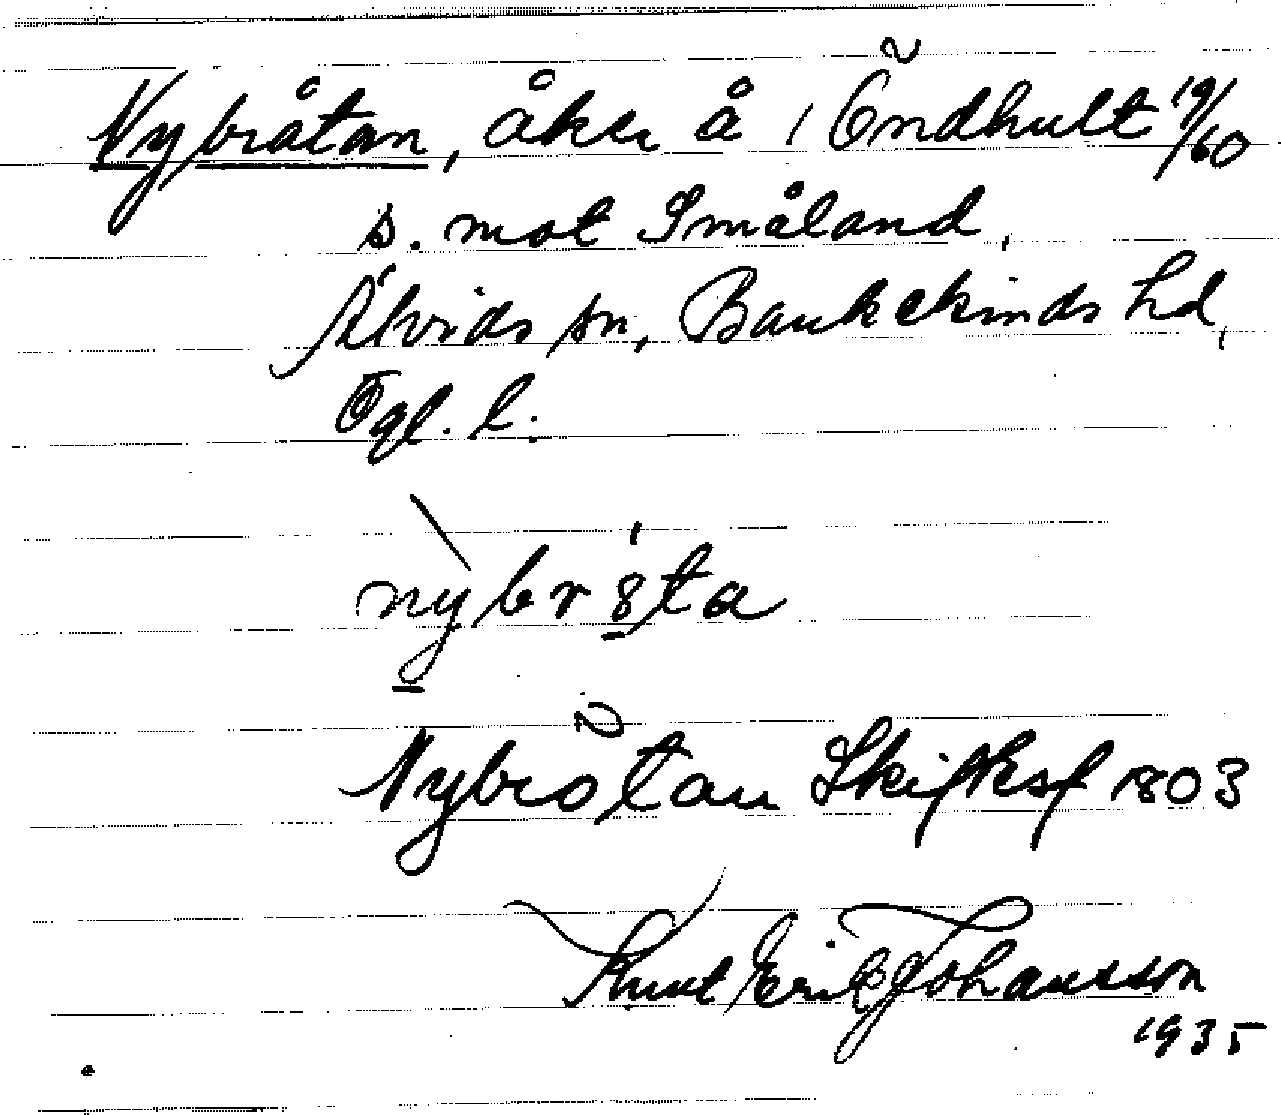 Nybråtan, åker å 1 Öndhult 19/60
s. mot Småland,
Åtvids sn, Bankekinds hd,
Ögl. l.
nybr8ta
Nybrötan Skiftksf 1803
Knut Erik Johansson
1935